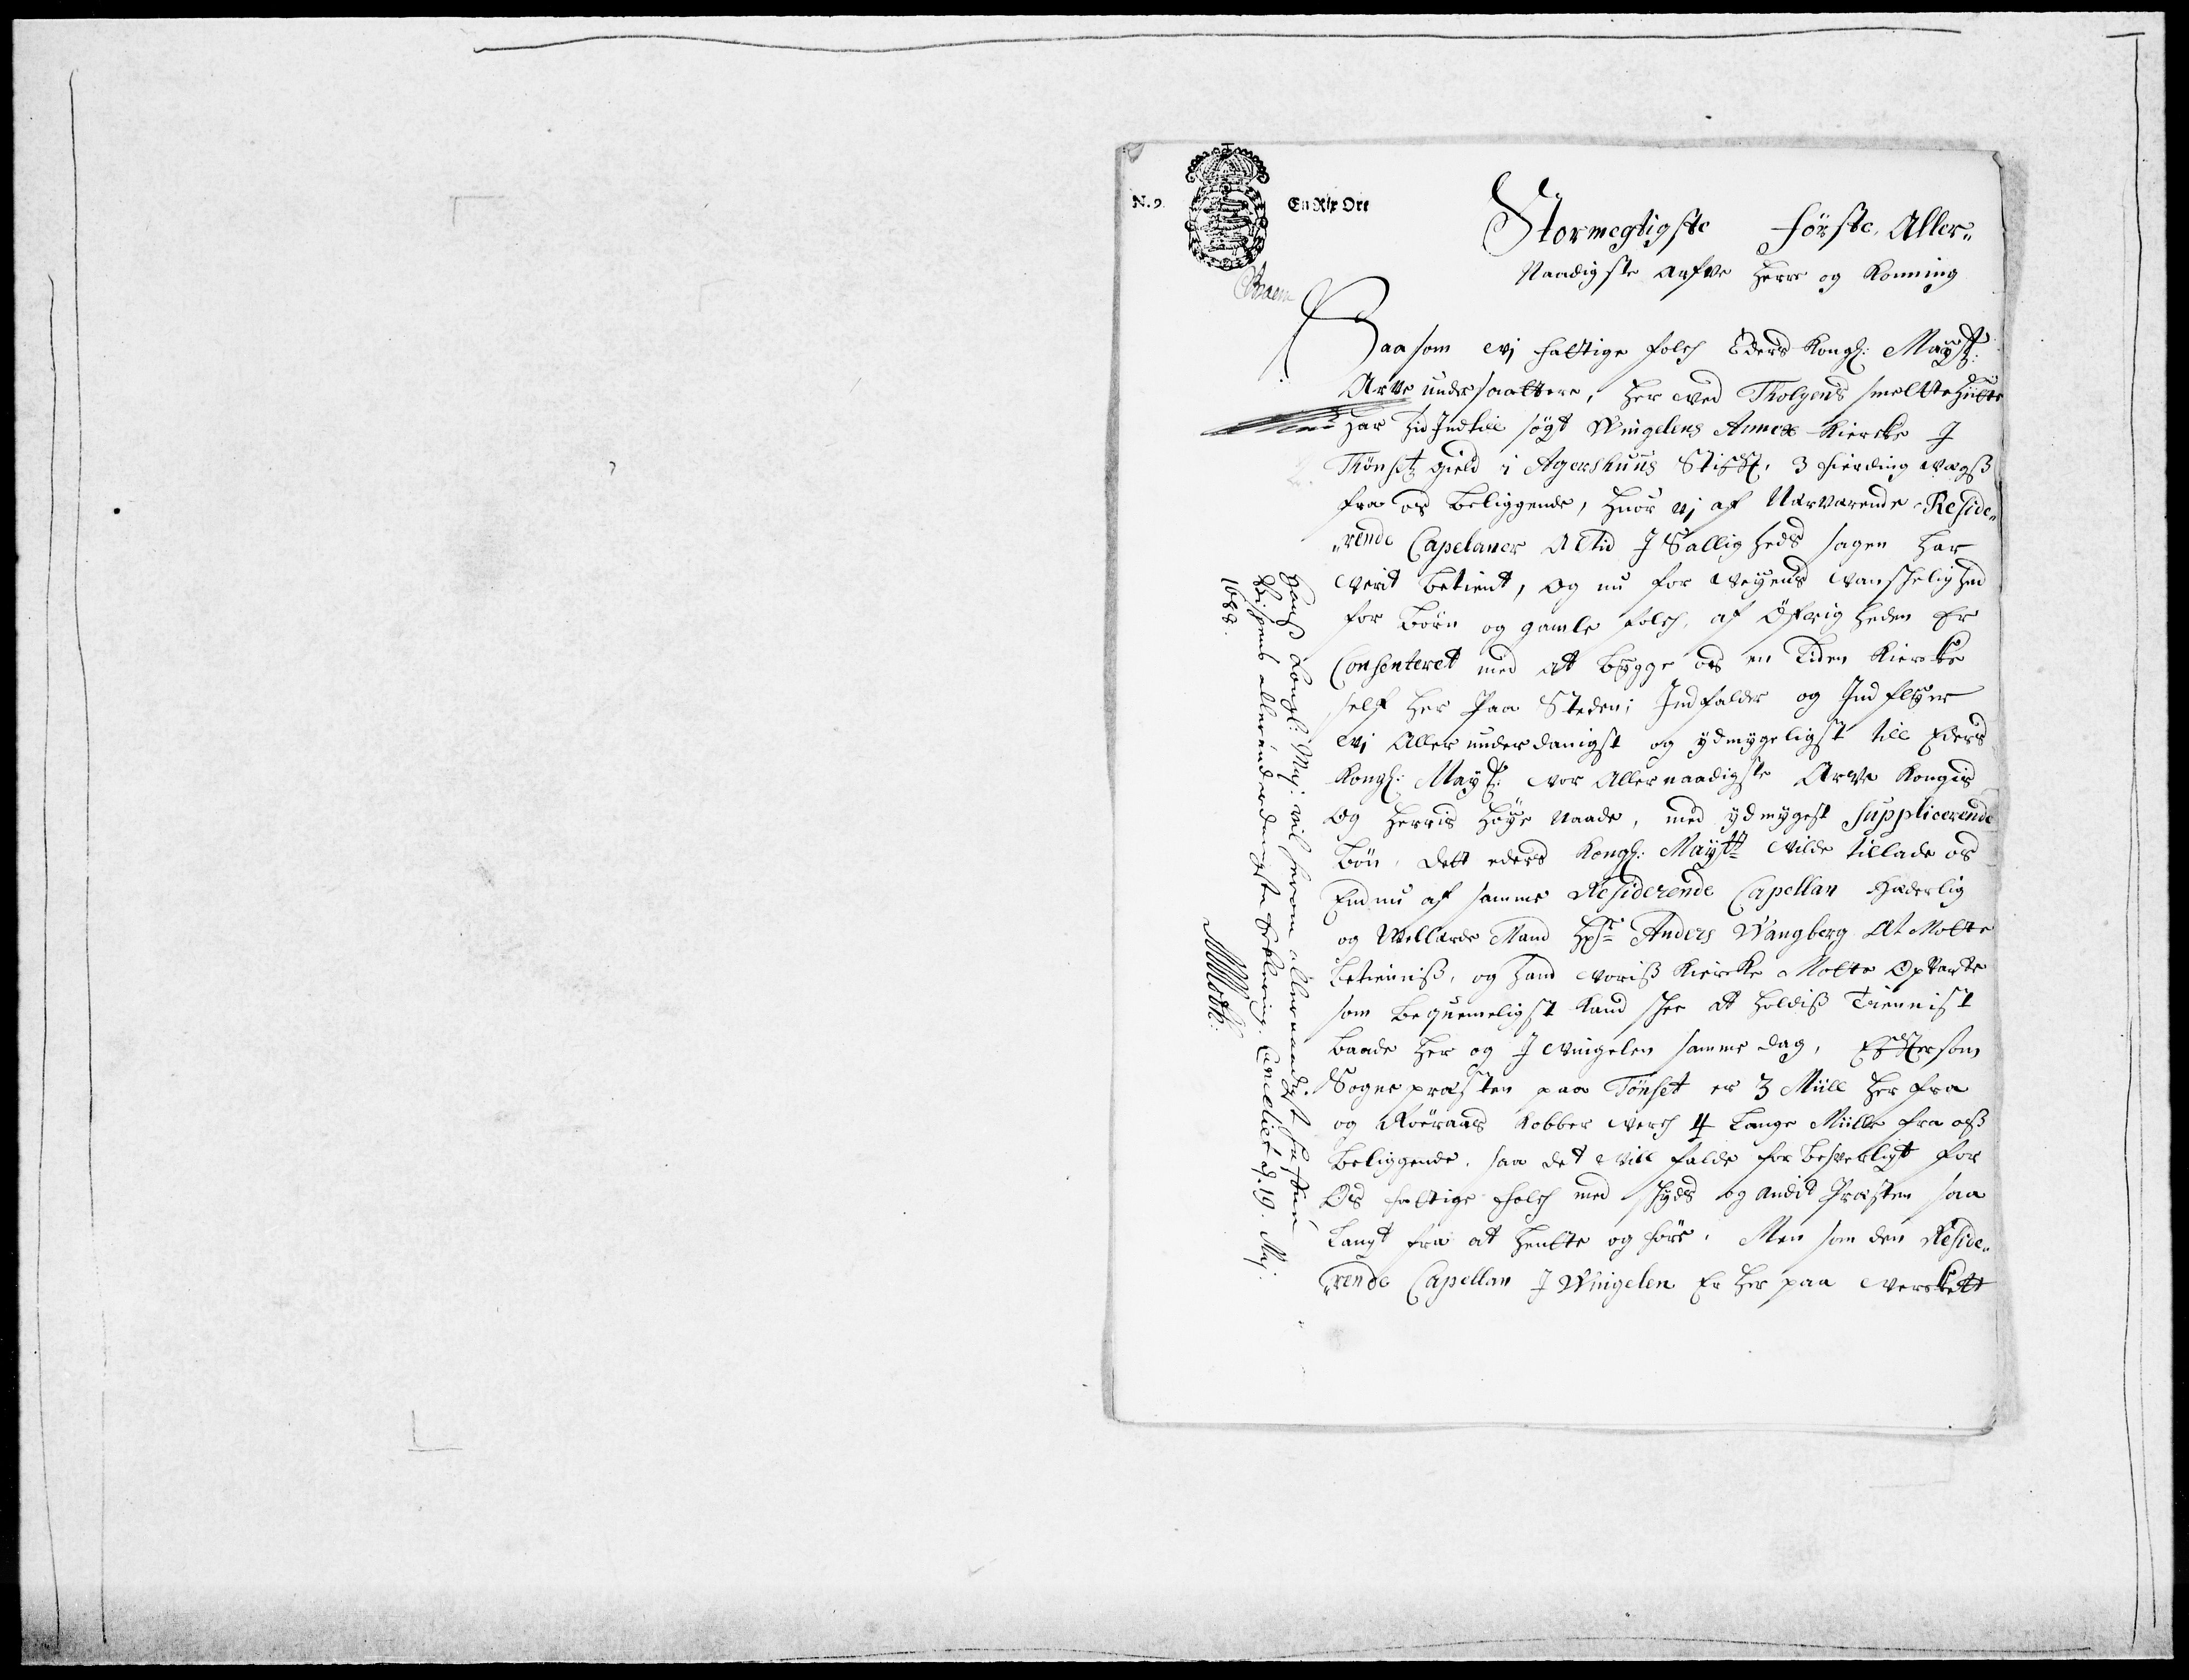 N. 9. En Rix Ort
Stormegtigste Förste, Aller„
Naadigste arfve Herre og Konning
Saasom wj fattige folch Eders Kongl: Mayst:
Arve undersaattere, her wed Tholgens smeltte hütte
har hid Indtill sögt Wingelens Annex Kiercke J
Thönsetz gield i Agershuus Stifft, 3 fierding weyß
fra os beliggende, huor wj af Nærværende Reside„
„rende Capelaner Altid J Sallig heds sagen har
werit betient, og nu for weyens wanschelighed
for börn og gamle folch, af Öfrigheden Er
Consenteret med at bygge os en Liden Kiercke
self her Paa Steden; Indfalder og Indflyer
wj Allerunderdanigst og ydmygeligst till Eders
Kongl: Mayt: wor Allernaadigste Arve Kongis
og Herris höye Naade, med ydmygest Supplicerende
bön, dett eders Kongl: Maystt wilde tillade os
Endnu af samme Residerende Capellan Hæderlig
og Wellærde Mand Hr Anders Wangberg At Motte
betienniß, og hand woriß Kiercke Motte Opvarte
som bequemeligst kand schee at holdiß Tiennist
baade her og J Wingelen samme dag, Efftersom
Sogne præsten paa Tönset er 3 Miill her fra
og Röeraas Kobber werch 4 Lange Miille fra oß
beliggende, saa det will falde for besverligt for
Os fattige folch med schyds og andit Præsten saa
Langt fra at hentte og före, Men som den Reside„
„rende Capellan J Wingelen Er her paa werckett
Hans Kongl: May: vil herom allernaadigst
Bispens allerunderdanigste Erklering. Cancelliet d. 19. Maj:
1688.
MMoth: